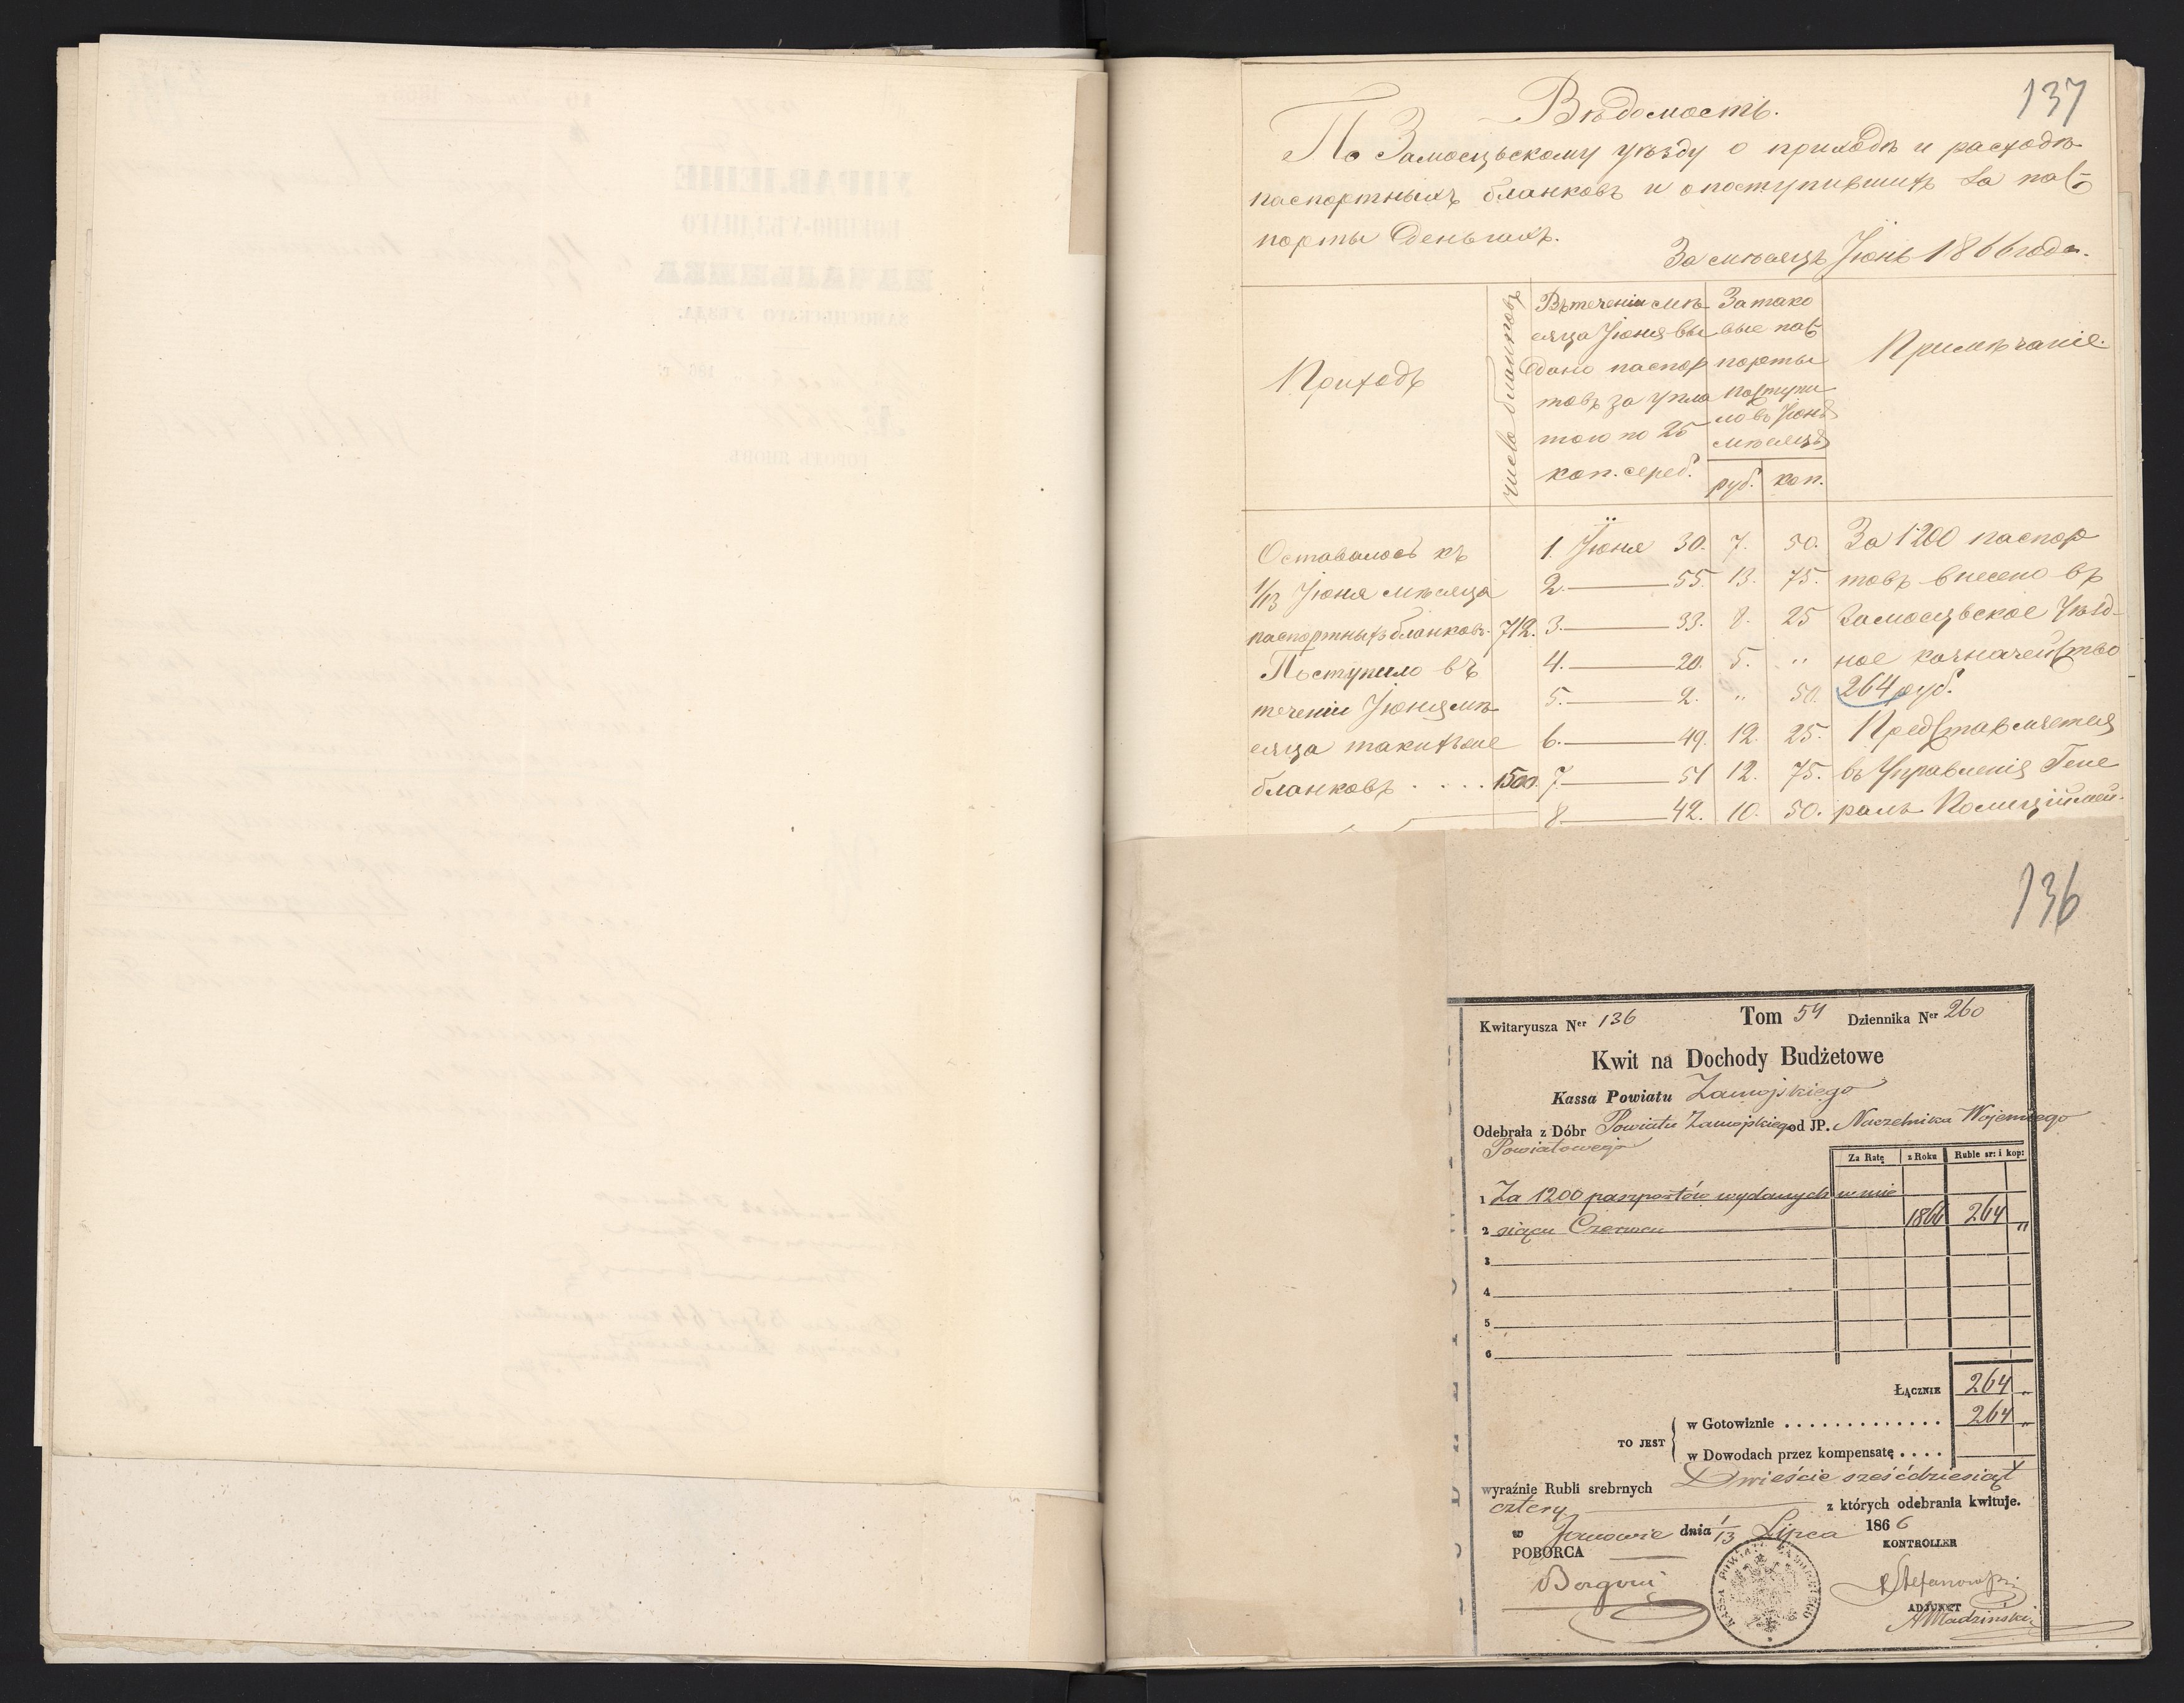 137
Вѣдомость.
По Замосцьскому уѣзду о приходѣ и расходѣ
паспортныхъ бланковъ и о поступившихъ за пас-
порты деньгахъ.
За мѣсяцъ Іюнь 1866 года.
Приходъ
число бланковъ
Въ теченіи мѣ-
сяца Іюня вы
дано паспор
товъ за упла
тою по 25
коп. сереб.
За тако
вые пас
порты
поступи
ло въ Іюнѣ
мѣсяцѣ
руб. коп.
Примѣчаніе.
Оставалось къ
1/13 Іюня мѣсяца
паспортныхъ бланковъ. 712.
Поступило въ
теченіи Іюня мѣ-
сяца такихъ же
бланковъ . . . . 1500.
1. Іюня 30. 7. 50.
2. 55. 13. 75.
3. 33. 8. 25
4. 20. 5. "
5. 2. " 50.
6. 49. 12. 25.
7. 51 12. 75.
8 42. 10. 50.
За 1200 паспор
товъ внесено въ
Замосцьское Уѣзд-
ное казначейство
264 руб.
Представляется
въ Управленія Гене
ралъ Полиціймей-
136
Kwitaryusza Ner 136 Tom 54 Dziennika Ner 260
Kwit na Dochody Budżetowe
Kassa Powiatu Zamojskiego
Odebrała z Dóbr Powiatu Zamojskiego od JP. Naczelnika Wojennego
Powiatowego
Za Ratę z Roku Ruble sr: i kop:
1 Za 1200 paszportów wydanych w mie
2 siącu Czerwcu 1866 264 "
3
4
5
6
ŁĄCZNIE 264 "
TO JEST
w Gotowiznie . . . . . . . . . . . . . 264 "
w Dowodach przez kompensatę . . . .
wyraźnie Rubli srebrnych Dwieście sześćdziesiąt
cztery z których odebrania kwituje.
w Janowie dnia 1/13 Lipca 1866
POBORCA
KONTROLLER
Stefanowski
ADJUNKT